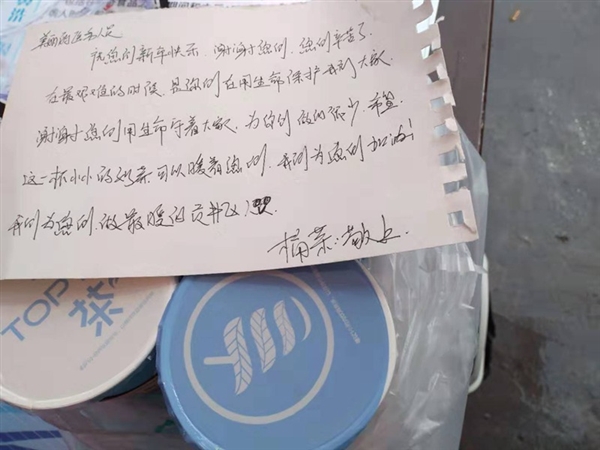 医务人员
祝您们新年快乐.谢谢您们.您们辛苦了
在最艰难的时候,是您们在用生命保护我们大家.
谢谢您们用生命守着大家,为你们做的很少,希望
这一杯小小的奶茶可以暖着您们.我们为您们加油!
我们为您们做最暖的
茶.敬上.
TOP
茶